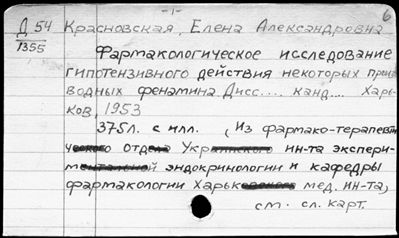 -1-
6
Д 54 Красновская, Елена Александровна
1355
Фармакологическое исследование
гипотензивного действия некоторых произ
водных фенамина. Дисс.... канд.... Харь-
ков, 1953
375л. с илл. (Из фармако-терапевти
ческого отдела Украинского ин-та экспери-
ментальной эндокринологии и кафедры
фармакологии Харьковского мед. ин-та,
см. сл. карт.